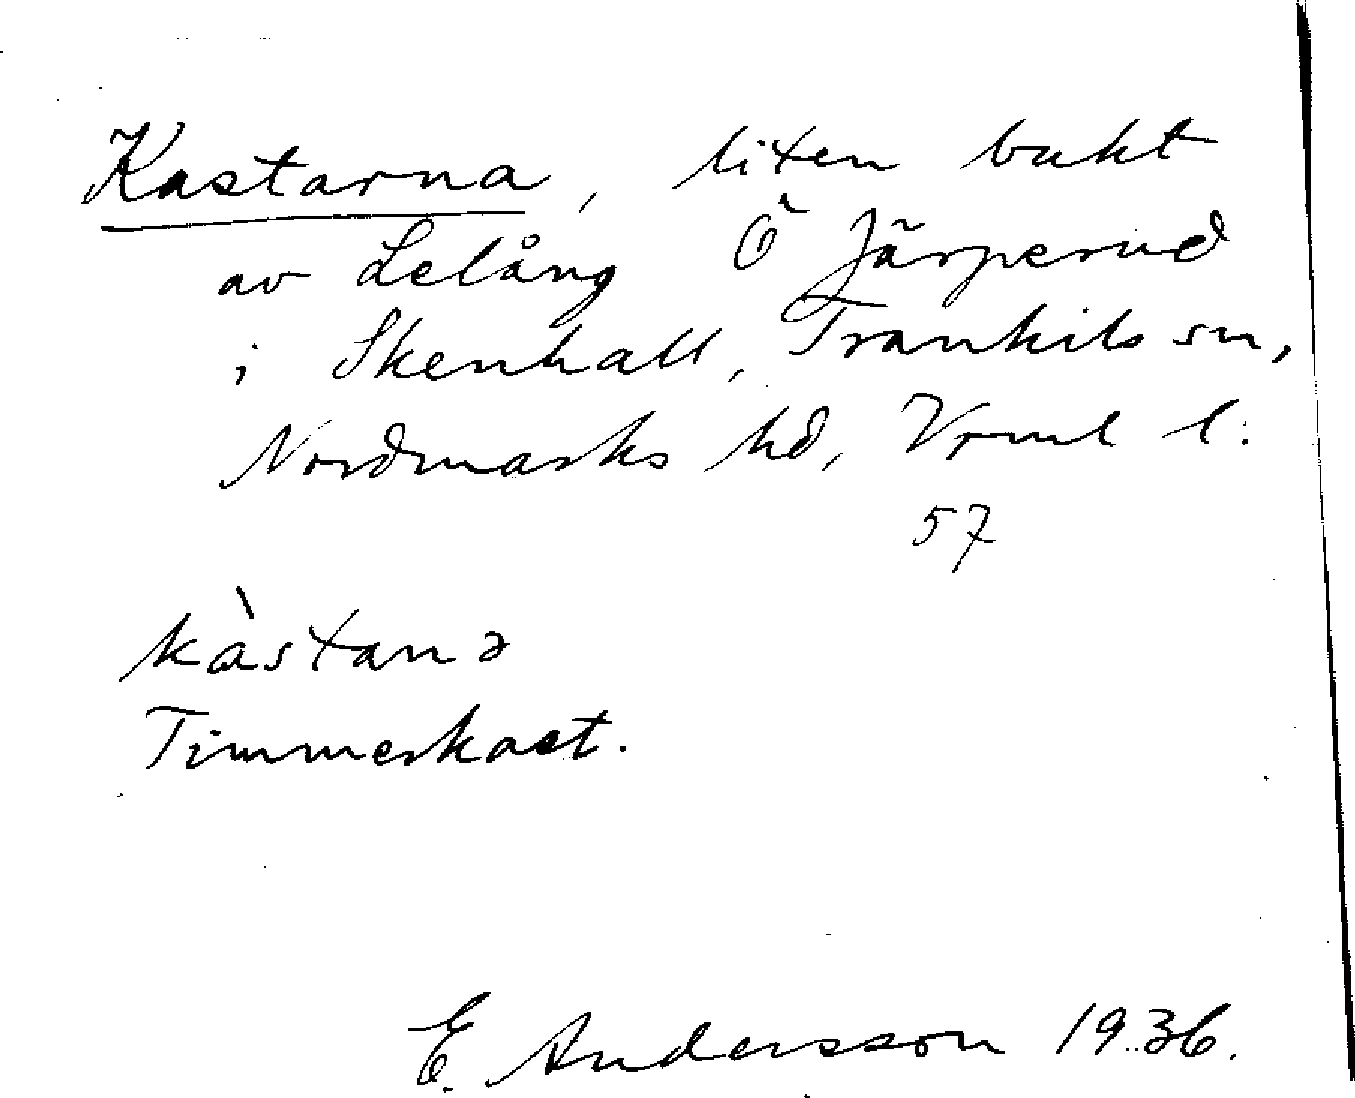 Kastarna, liten bukt
av Lelång Ö Järperud
i Skenhall, Trankils sn,
Nordmarks hd, Vrml l.
57
kàstanə
Timmerkast.
E. Andersson 1936.